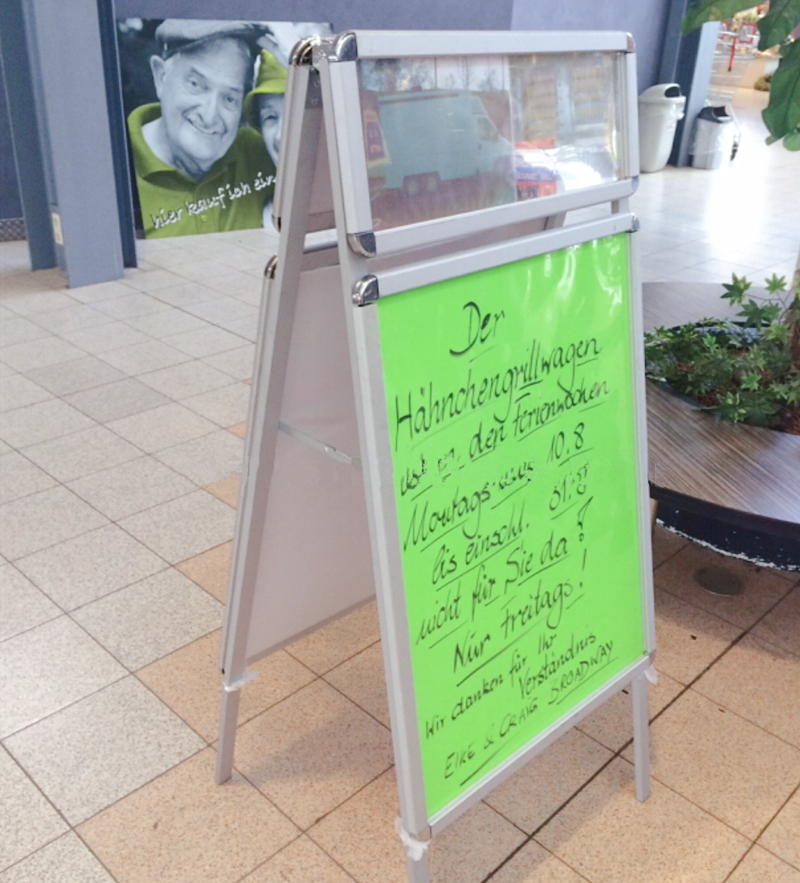 hier kauf ich ein
Der
Hähnchengrillwagen
ist in den Ferienwochen
Montags vom 10.8
bis einschl. 31.8
nicht für Sie da!
Nur Freitags!
Wir danken für Ihr
Verständnis
ELKE & CRAIG BROADWAY